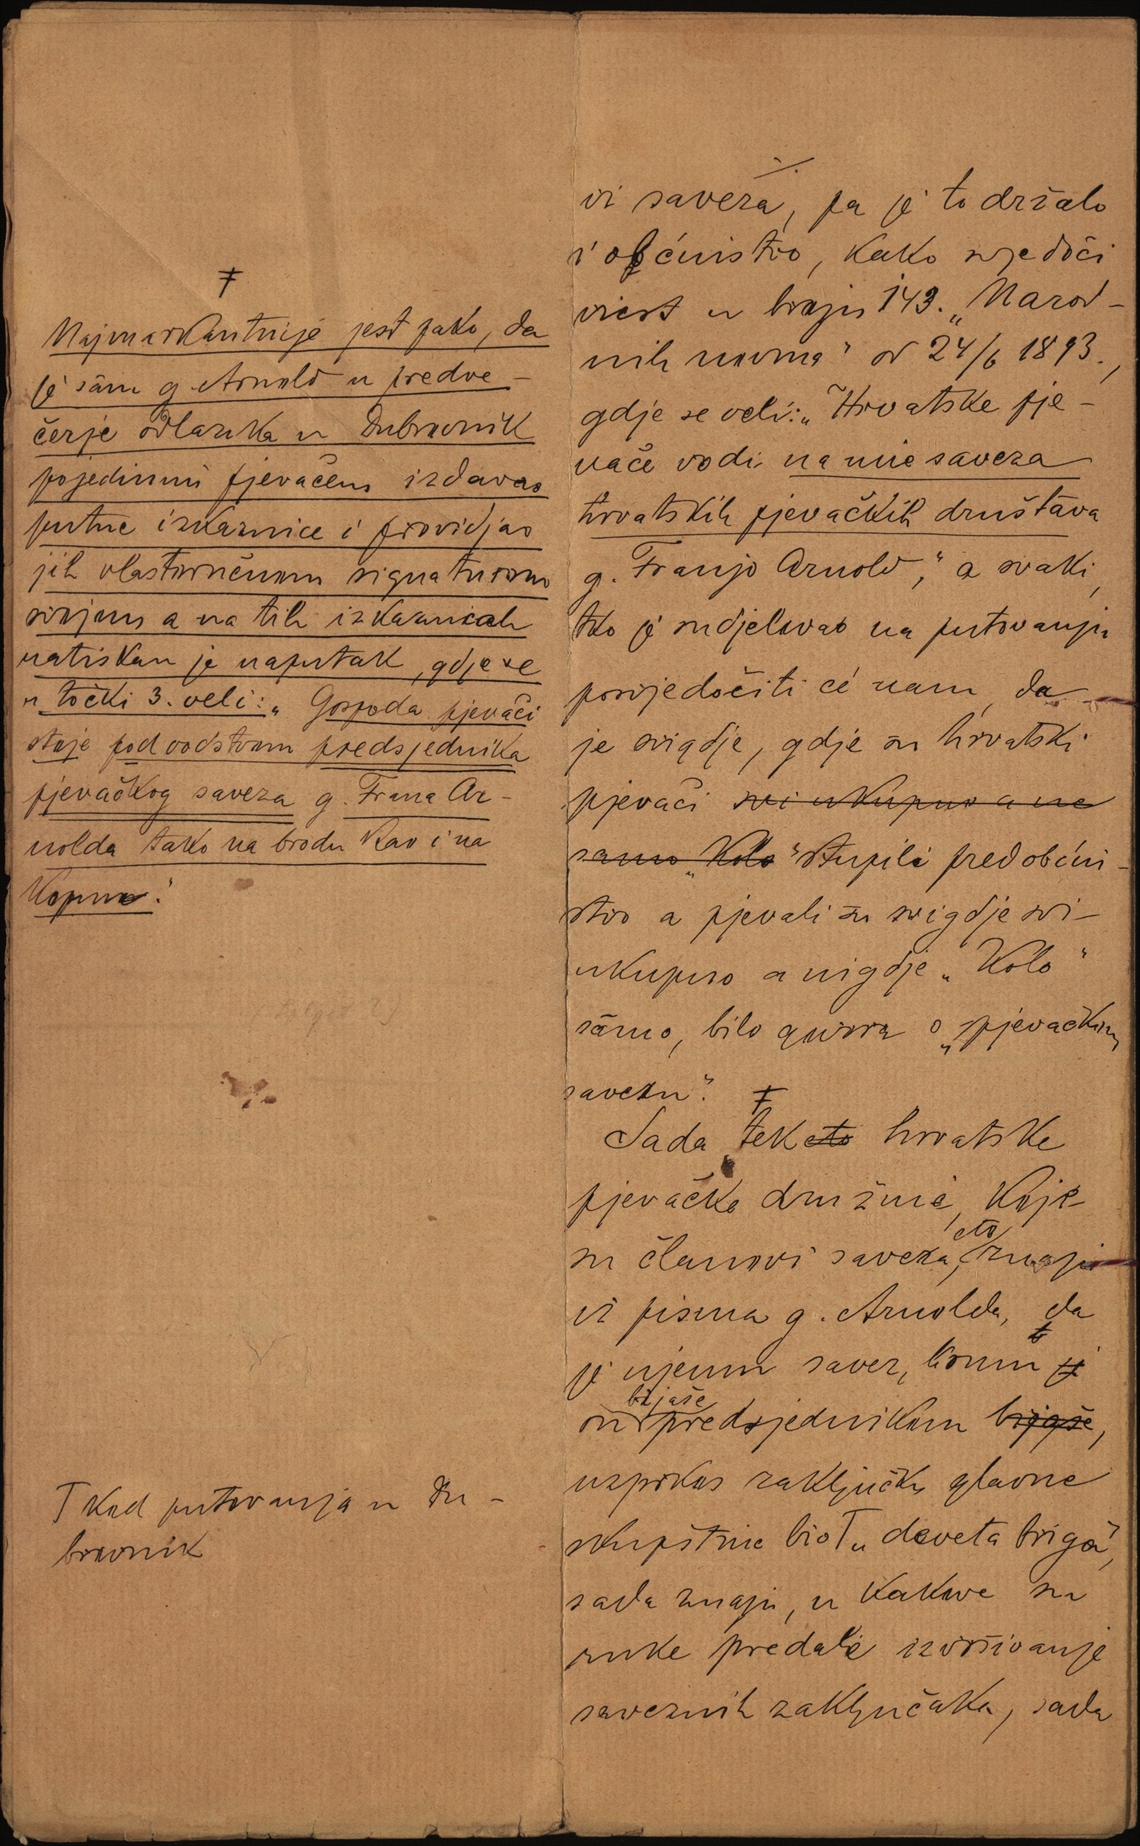 Najmarkantnije jest pako, da
je sâm g Arnold u predve-
čerje odlazka u Dubrovnik
pojedinim pjevačem izdavao
putne izkaznice i providjao
jih vlastoručnom signaturom
svojom a na tih izkaznicah
natiskan je naputak, gdje se
u točki 3. veli: „ Gospoda pjevači
stoje pod vodstvom predsjednika
pjevačkog saveza g. Frana Ar-
nolda tako na brodu kao i na
kopnu."
T kod putovanja u Du-
brovnik
vi saveza, pa je to držalo
i obćinstvo, kako svjedoči
viest u broju 143. „Narod-
nih novina" od 24/6 1893.,
gdje se veli: „Hrvatske pje-
vače vodi na ime saveza
hrvatskih pjevačkih društava
g. Franjo Arnold", a svaki,
tko je sudjelovao na putovanju
posvjedočiti će nam, da
je svigdje, gdje su hrvatski
pjevači svi ukupno a ne
samo „Kolo" stupili pred obćin-
stvo a pjevali su svigdje svi-
ukupno a nigdje „Kolo"
sâmo, bilo govora o „pjevačkom
savezu".
Sada tek eto hrvatske
pjevačke družine, koje
su članovi saveza, eto znaju
iz pisma g. Arnolda, da
je njemu savez, komu je
on bijaše predsjednikom bijaše,
uzprkos zaključku glavne
skupštine bio T „deveta briga",
sada znaju, u kakve su
ruke predale izvršivanje
saveznih zaključaka, sada